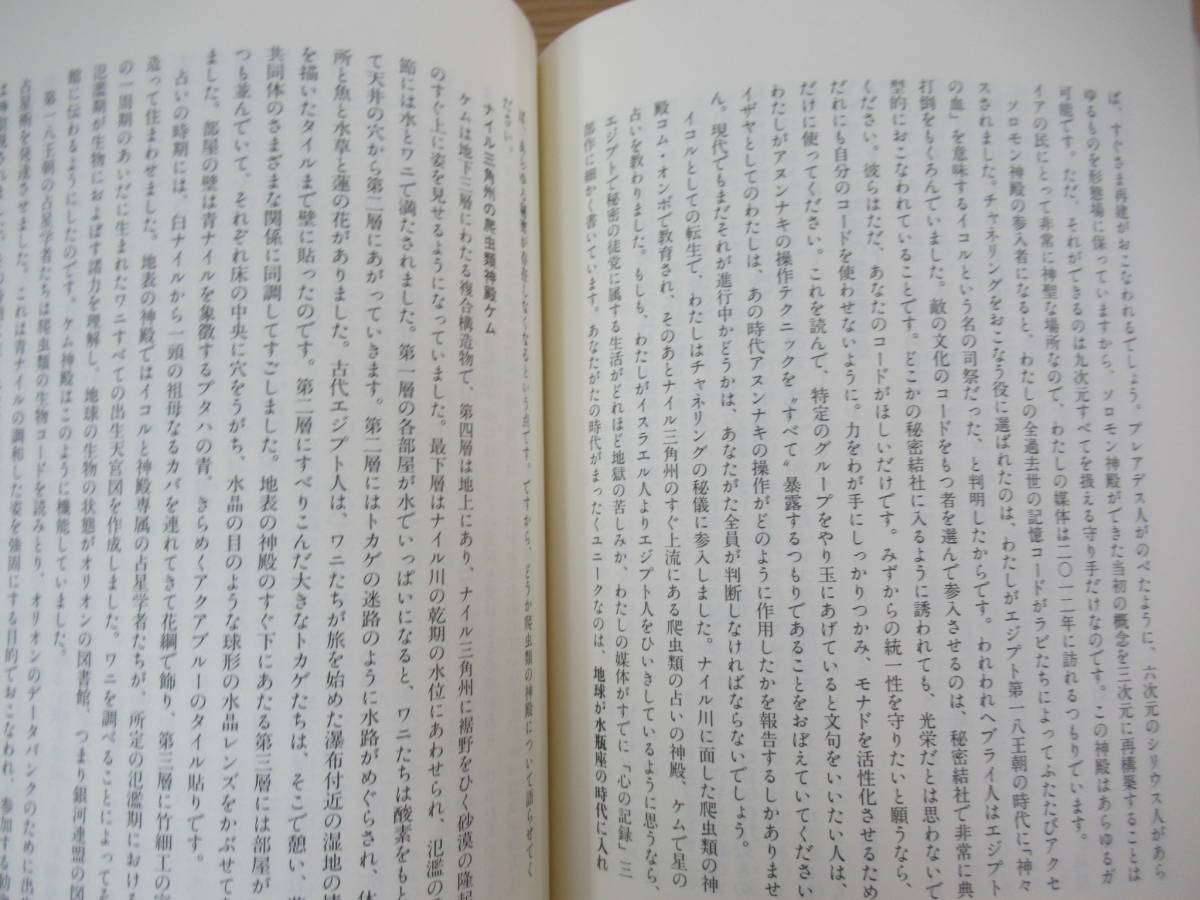 ば、すぐさま再建がおこなわれるでしょう。プレアデス人がのべたように、六次元のシリウス人があら
ゆるものを形態場に保っていますから、ソロモン神殿ができた当初の概念を三次元に再構築することは
可能です。ただ、それができるのは九次元すべてを扱える守り手だけなのです。この神殿はあらゆるガ
イアの民にとって非常に神聖な場所なので、わたしの媒体は二〇一二年に訪れるつもりでいます。
ソロモン神殿の参入者になると、わたしの全過去世の記憶コードがラビたちによってふたたびアクセ
スされました。チャネリングをおこなう役に選ばれたのは、わたしがエジプト第一八王朝の時代に〝神々
の血〟を意味するイコルという名の司祭だった、と判明したからです。われわれヘブライ人はエジプト
打倒をもくろんでいました。敵の文化のコードをもつ者を選んで参入させるのは、秘密結社で非常に典
型的におこなわれていることです。どこかの秘密結社に入るように誘われても、光栄だとは思わないで
ください。彼らはただ、あなたのコードがほしいだけです。みずからの統一性を守りたいと願うなら、
だれにも自分のコードを使わせないように。力をわが手にしっかりつかみ、モナドを活性化させるため
だけに使ってください。これを読んで、特定のグループをやり玉にあげていると文句をいいたい人は、
わたしがアヌンナキの操作テクニックを〝すべて〟暴露するつもりであることをおぼえていてください
イザヤとしてのわたしは、あの時代アヌンナキの操作がどのように作用したかを報告するしかありませ
ん。現代でもまだそれが進行中かどうかは、あなたがた全員が判断しなければならないでしょう。
イコルとしての転生で、わたしはチャネリングの秘儀に参入しました。ナイル川に面した爬虫類の神
殿コム・オンボで教育され、そのあとナイル三角州のすぐ上流にある爬虫類の占いの神殿、ケムで星の
占いを教わりました。もしも、わたしがイスラエル人よりエジプト人をひいきしているように思うなら、
エジプトで秘密の徒党に属する生活がどれほど地獄の苦しみか、わたしの媒体がすでに「心の記録」三
部作に細かく書いています。あなたがたの時代がまったくユニークなのは、地球が水瓶座の時代に入れ
ば、あらゆる秘密が存在しなくなるという点です。ですから、どうか爬虫類の神殿について語らせてく
ださい。
ナイル三角州の爬虫類神殿ケム
ケムは地下三層にわたる複合構造物で、第四層は地上にあり、ナイル三角州に裾野をひく砂漠の隆起
のすぐ上に姿を見せるようになっていました。最下層はナイル川の乾期の水位にあわせられ、氾濫の
節には水とワニで満たされました。第一層の各部屋が水でいっぱいになると、ワニたちは酸素をもと
て天井の穴から第二層にあがっていきます。第二層にはトカゲの迷路のように水路がめぐらされ、休
所と魚と水草と蓮の花がありました。古代エジプト人は、ワニたちが旅を始めた瀑布付近の湿地の情
を描いたタイルまで壁に貼ったのです。第二層にすべりこんだ大きなトカゲたちは、そこで憩い、
共同体のさまざまな関係に同調してすごしました。地表の神殿のすぐ下にあたる第三層には部屋が
つも並んでいて、それぞれ床の中央に穴をうがち、水晶の目のような球形の水晶レンズをかぶせて
ました。部屋の壁は青ナイルを象徴するプタハの青、きらめくアクアブルーのタイル貼りです。
占いの時期には、白ナイルから一頭の祖母なるカバを連れてきて花綱で飾り、第三層に竹細工の
造って住まわせました。地表の神殿ではイコルと神殿専属の占星学者たちが、所定の氾濫期における
の一周期のあいだに生まれたワニすべての出生天宮図を作成しました。ワニを調べることによってそ
氾濫期が生物におよぼす諸力を理解し、地球の生物の状態がオリオンの図書館、つまり銀河連盟の図
館に伝わるようにしたのです。ケム神殿はこのように機能していました。
第一八王朝の占星学者たちは爬虫類の生物コードを読みとり、オリオンのデータバンクのために出
占星術を発達させました。これは青ナイルの調和した姿を強固にする目的でおこなわれ、参加する動